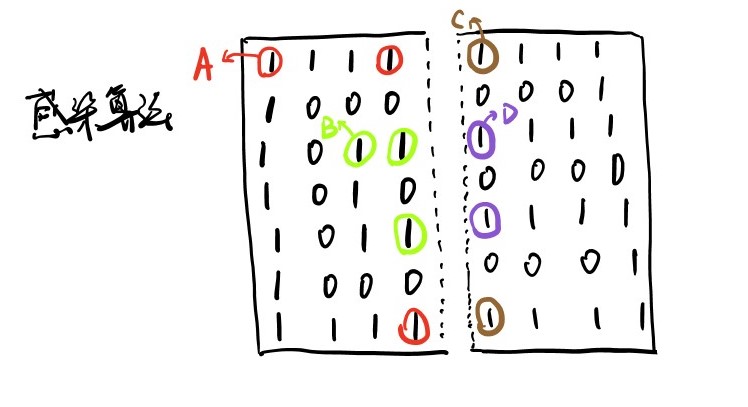 感染算法
A
1 1 1 1
1 0 0 0
B
1 0 1 1
1 0 1 0
1 0 1 1
1 0 0 0
1 1 1 1
C
1 1 1 1
0 0 0 1
D
1 1 1 1
0 0 0 0
1 1 1 1
0 0 0 1
1 1 1 1